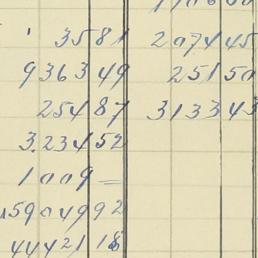 3581 2074 45
9363 49 251 50
254 87 3133 43
3.234 52
1009 =
5904992
4442118